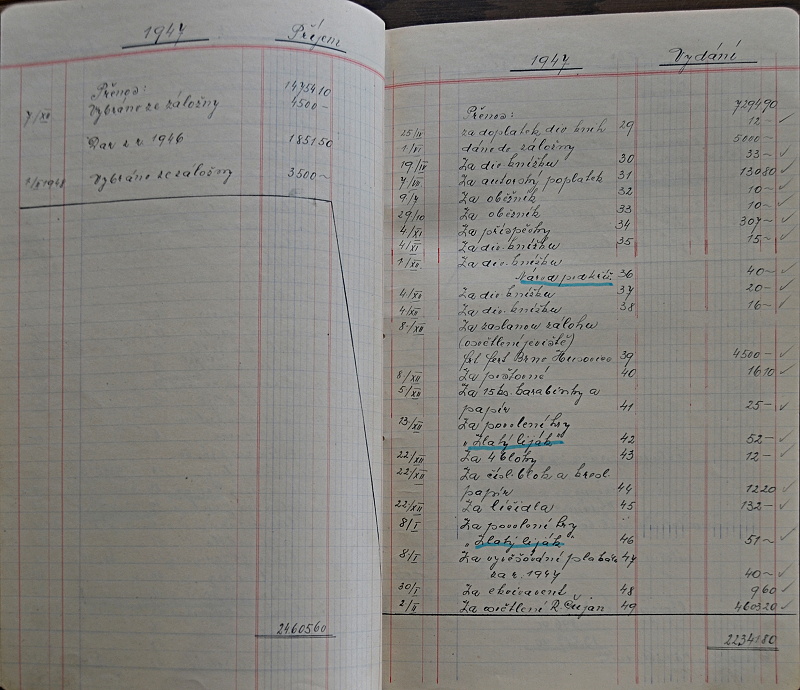 1947 Příjem
Přenos: 1475410
7/XII Vybráno ze záložny 4500–
Par z r. 1946 185150
Vybráno ze záložny 3500–
2460560
1947 Vydání
Přenos: 729490
25/IV za doplatek div. knih 29 12–
1/VI dáno do záložny 5000–
19/IV Za div. knížku 30 33–
7/VII Za autorský poplatek 31 13080
9/7 Za oběžník 32 10–
29/10 Za oběžník 33 10–
4/XI Za příspěvky 34 307–
4/XI Za div. knížku 35 15–
1/XII Za div. knížku
36 40–
4/XII Za div. knížku 37 20–
4/XII Za div. knížku 38 16–
8–/XII Za zaslanou zálohu
(osvětlení jeviště)
Brno Husovice 39 4500–
8/XII Za poštovné 40 1610
5/XII Za 15 ks. a
papír 41 25–
13/XII Za povolení hry
„Zlatý liják“ 42 52–
22/XII Za 4 bloky 43 12–
22/XII Za čísl. blok a kresl.
papír 44 1220
22/XII Za líčidla 45 132–
8/I Za povolení hry
„Zlatý liják“ 46 51–
8/I Za vyvěšování plakátů 47
za r. 1947 40–
30/I Za ekvivalent 48 960
2/II Za osvětlení R. Čujan 49 460320
2234180